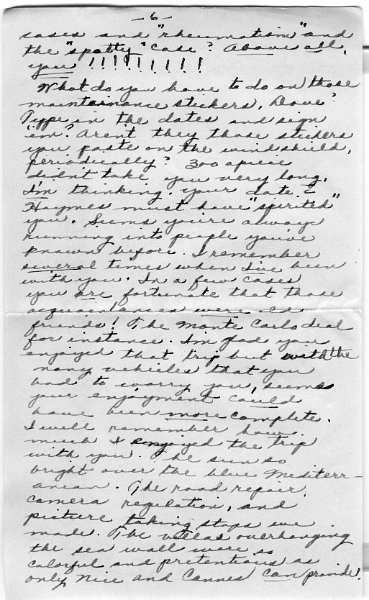 -6-
cases and "rheumatism" and
the "spotty" case? Above all,
you!!!!!!!!!
What do you have to do on those
maintainance stickers, Dove?
Type in the dates and sign
'em? Aren't they those stickers
you paste on the windshield,
periodically? 300 apiece
didn't take you very long,
I'm thinking. Your date
Haymes must have "spirited"
you. Seems you're always
running into people you've
known before. I remember
several times when I've been
with you. In a few cases
you are fortunate that those
acquaintances were old
friends! The Monte Carlo deal
for instance. I'm glad you
enjoyed that trip but with the
many vehicles that you
had to worry you, seems
your enjoyment could
have been more complete.
I well remember how
much I enjoyed the trip
with you. The sun so
bright over the blue Mediterr-
anian. The road repair,
camera regulation, and
picture taking stops we
made. The villas overhanging
the sea wall were so
colorful and pretentious as
only Nice and Cannes can provide!